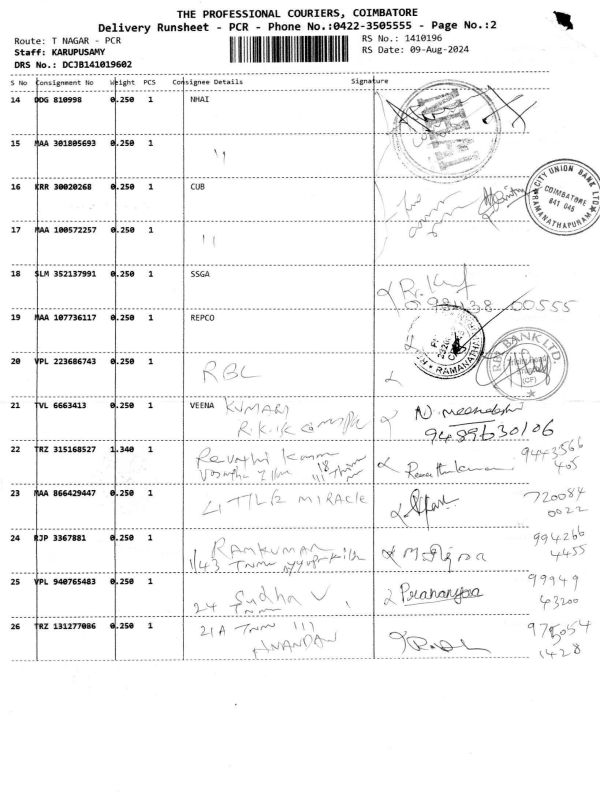 THE PROFESSIONAL COURIERS, COIMBATORE
Delivery Runsheet - PCR - Phone No.:0422-3505555 - Page No.:2
Route: T NAGAR - PCR
RS No.: 1410196
Staff: KARUPUSAMY
RS Date: 09-Aug-2024
DRS No.: DCJB141019602
S No Consignment No Weight PCS Consignee Details Signature
14 DDG 810998 0.250 1 NHAI
15 MAA 301805693 0.250 1 11
16 KRR 30020268 0.250 1 CUB
CITY UNION BANK LTD
COIMBATORE
641 045
RAMANATHAPURAM
17 MAA 100572257 0.250 1 11
18 SLM 352137991 0.250 1 SSGA
00555
19 MAA 107736117 0.250 1 REPCO
RAMANATH
20 VPL 223686743 0.250 1 RBL
BANK LTD.
21 TVL 6663413 0.250 1 VEENA KUMARI
9489630106
22 TRZ 315168527 1.340 1 Revathi
9443566
405
23 MAA 866429447 0.250 1 LITTLE MIRACLE
720084
0022
24 RJP 3367881 0.250 1 RAMKUMAR
1/43
994266
4455
25 VPL 940765483 0.250 1 Sudha V
24
99949
43200
26 TRZ 131277086 0.250 1 21A
ANANDAN
975054
1428